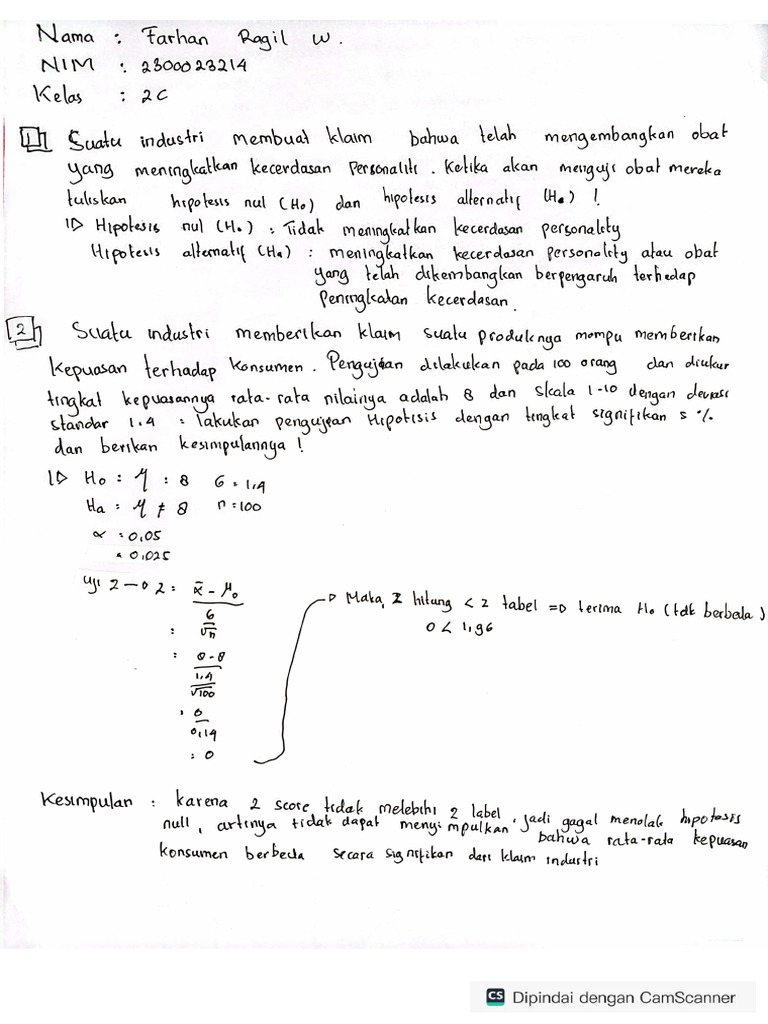 Nama : Farhan Ragil W.
NIM : 2300023214
Kelas : 2C
1 Suatu industri membuat klaim bahwa telah mengembangkan obat
yang meningkatkan kecerdasan Personaliti. Ketika akan menguji obat mereka
tuliskan hipotesis nul (Ho) dan hipotesis alternatif (Ha) !
ID Hipotesis nul (Ho) : Tidak meningkatkan kecerdasan personality
Hipotesis alternatif (Ha) : meningkatkan kecerdasan personality atau obat
yang telah dikembangkan berpengaruh terhadap
Peningkatan kecerdasan.
2 Suatu industri memberikan klaim suatu produknya mampu memberikan
kepuasan terhadap konsumen. Pengujian dilakukan pada 100 orang dan diukur
tingkat kepuasannya rata-rata nilainya adalah 8 dan skala 1-10 dengan deviasi
standar 1.4 = lakukan pengujian Hipotisis dengan tingkat signifikan 5 %
dan berikan kesimpulannya !
ID Ho : μ : 8 σ = 1,4
Ha : μ ≠ 8 n = 100
α : 0,05
= 0,025
Uji Z → Z = x̄ - μo
σ
: √n
: 8-8
1.4
√100
: 0
0,14
: 0
Maka, Z hitung < Z tabel => terima Ho (tdk berbeda)
0 < 1,96
Kesimpulan : karena Z score tidak melebihi Z label, jadi gagal menolak hipotesis
null, artinya tidak dapat menyimpulkan bahwa rata-rata kepuasan
konsumen berbeda secara signifikan dari klaim industri
CS Dipindai dengan CamScanner